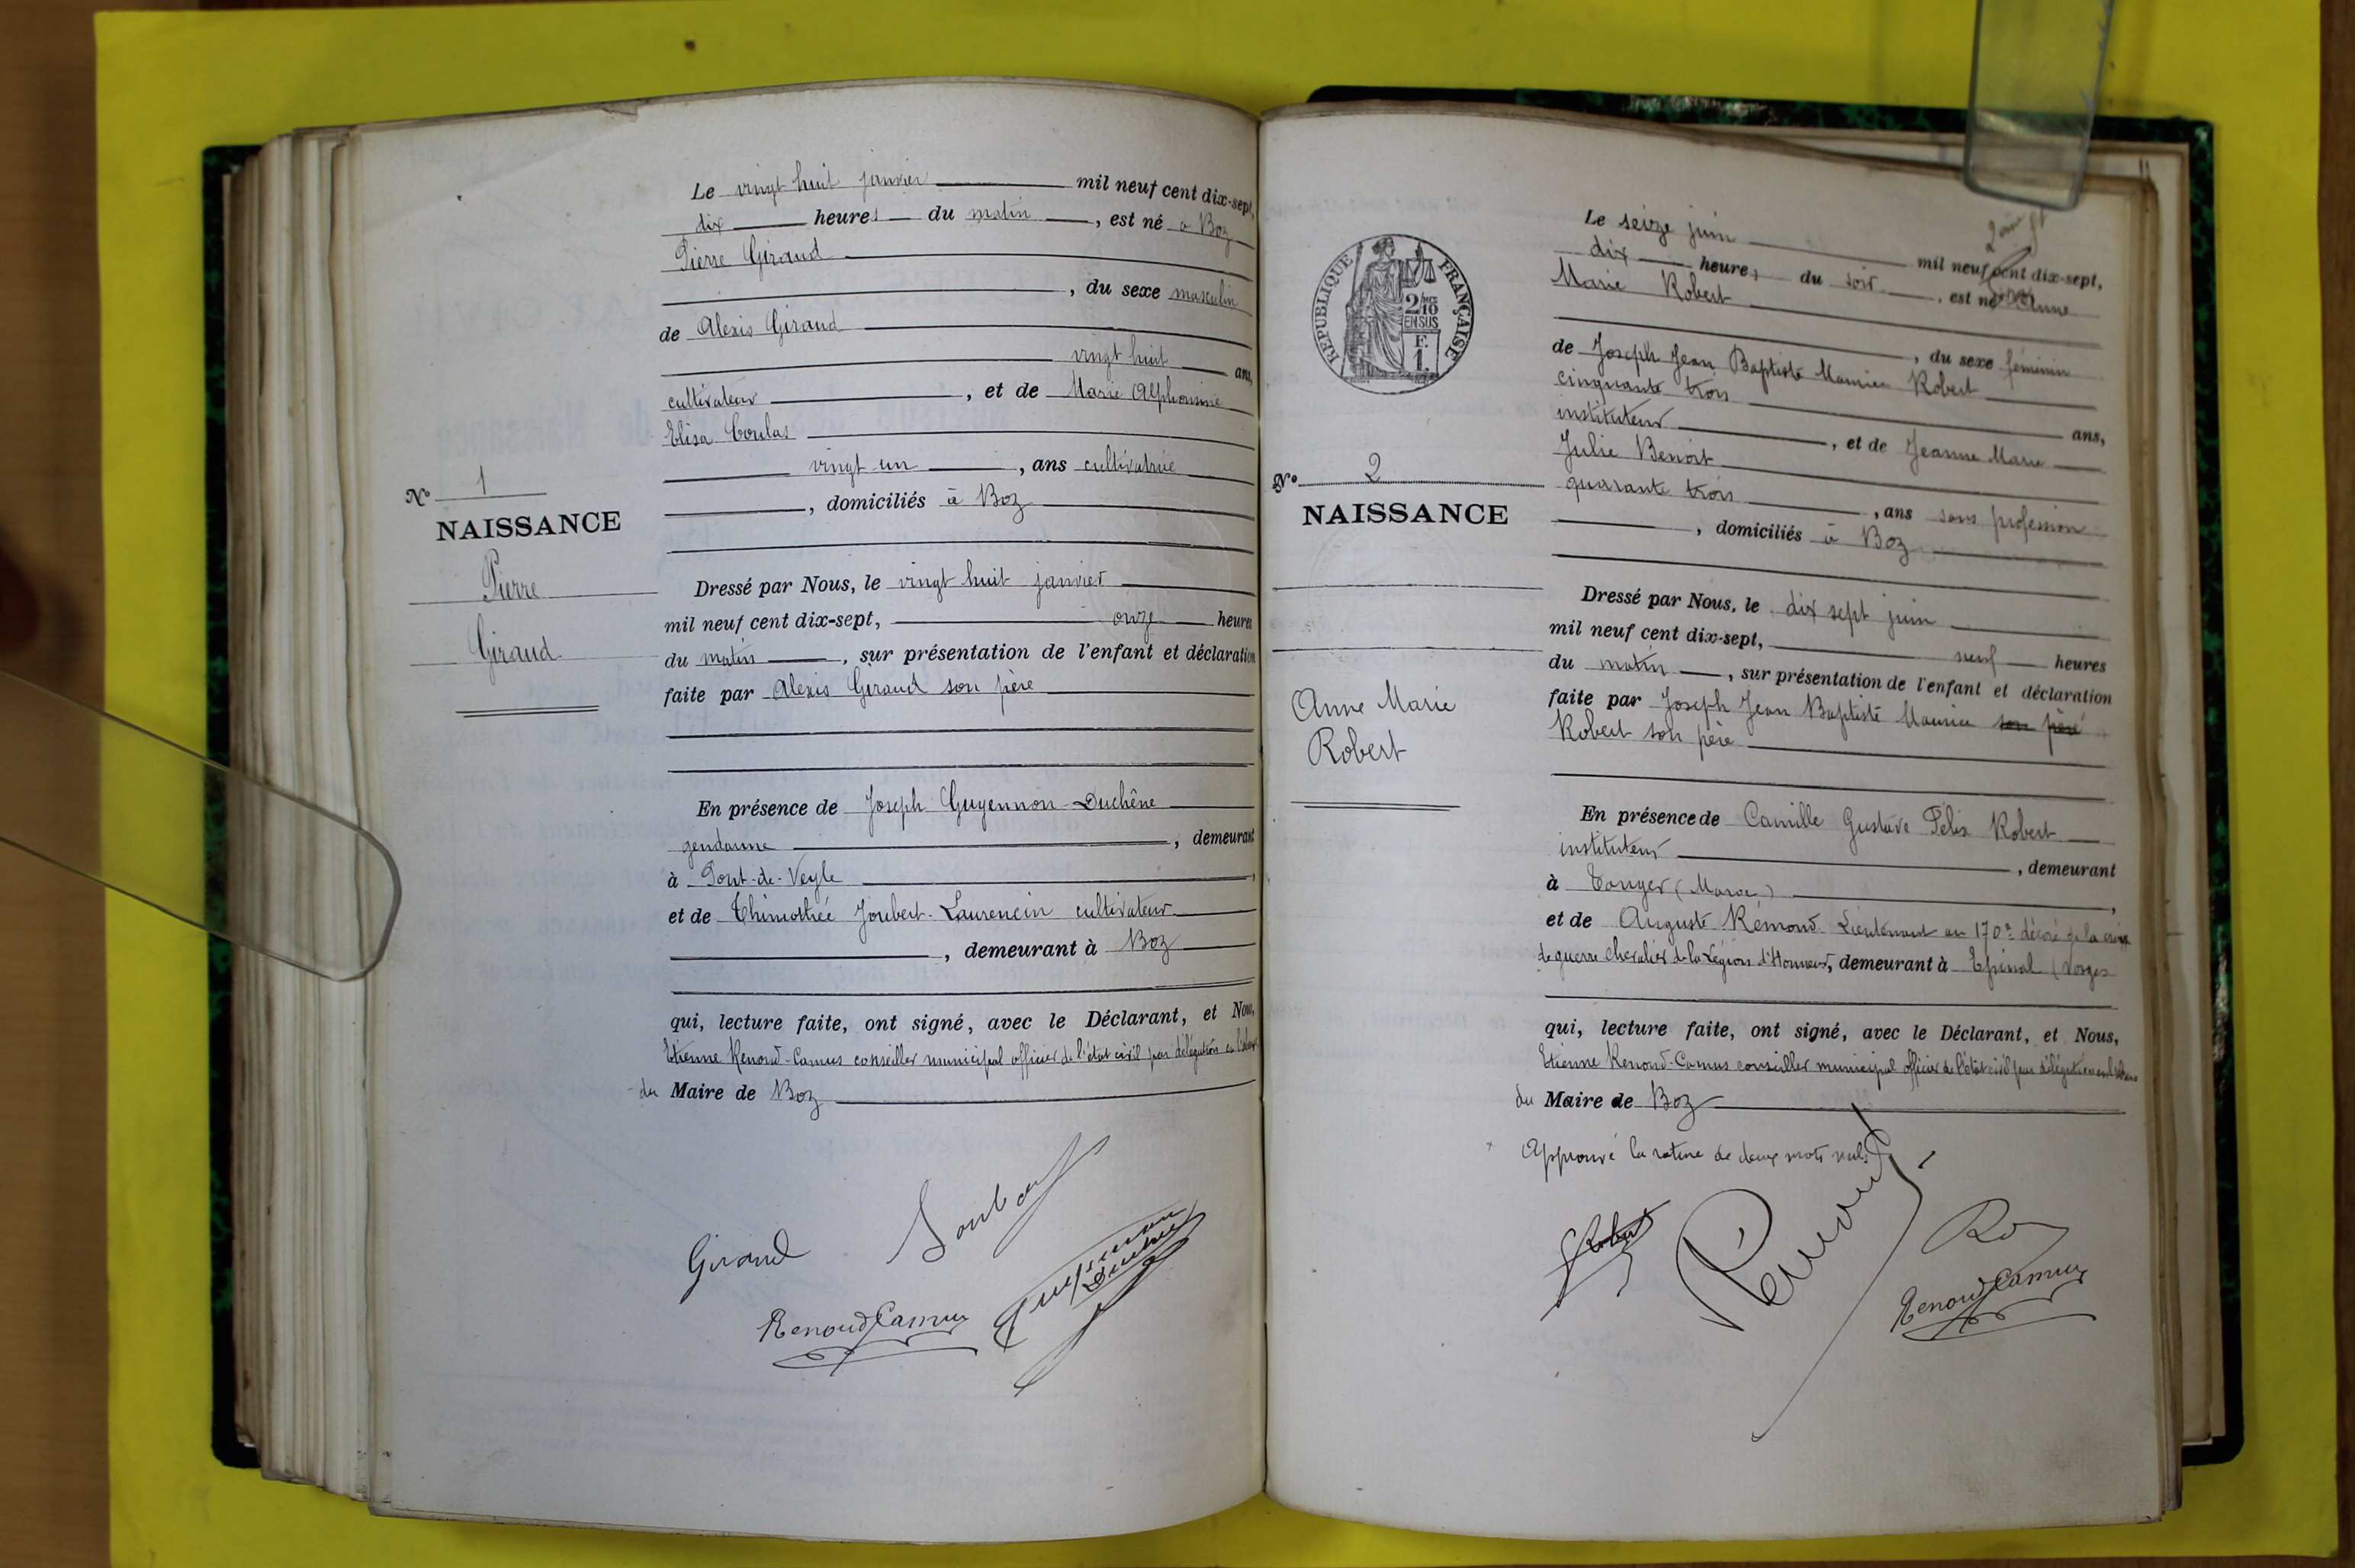 Le vingt huit janvier mil neuf cent dix-sept,
dix heures du matin, est né à Boz
Pierre Giraud
, du sexe masculin
de Alexis Giraud
vingt huit ans,
cultivateur, et de Marie Alphonsine
Elisa Coulas
vingt un, ans cultivatrice
, domiciliés à Boz
N° 1
NAISSANCE
Pierre
Giraud
Dressé par Nous, le vingt huit janvier
mil neuf cent dix-sept, onze heures
du matin, sur présentation de l'enfant et déclaration
faite par Alexis Giraud son père
En présence de Joseph Guyennon-Duchêne
gendarme, demeurant
à Pont-de-Veyle,
et de Thimothée Joubert-Laurencin cultivateur
, demeurant à Boz
qui, lecture faite, ont signé, avec le Déclarant, et Nous,
Etienne Renoud-Camus conseiller municipal officier de l'état civil par délégation en l'absence
du Maire de Boz
Giraud
Joubert
Renoud Camus
Guyennon
Duchêne
REPUBLIQUE FRANÇAISE
2/10
EN SUS
F.
1.
Le seize juin mil neuf cent dix-sept,
dix heures du soir, est né Anne
Marie Robert
, du sexe féminin
de Joseph Jean Baptiste Maurice Robert
cinquante trois ans,
instituteur, et de Jeanne Marie
Julie Benoit
quarante trois, ans sans profession
, domiciliés à Boz
N° 2
NAISSANCE
Anne Marie
Robert
Dressé par Nous, le dix sept juin
mil neuf cent dix-sept, neuf heures
du matin, sur présentation de l'enfant et déclaration
faite par Joseph Jean Baptiste Maurice son père
Robert son père
En présence de Camille Gustave Félix Robert
instituteur, demeurant
à Tanger (Maroc),
et de Auguste Rémond Lieutenant au 170e décoré de la croix
de guerre chevalier de la Légion d'Honneur, demeurant à Epinal (Vosges
qui, lecture faite, ont signé, avec le Déclarant, et Nous,
Etienne Renoud-Camus conseiller municipal officier de l'état civil par délégation en l'absence
du Maire de Boz
Approuvé la rature de deux mots nuls
Robert
Rémond
Renoud Camus